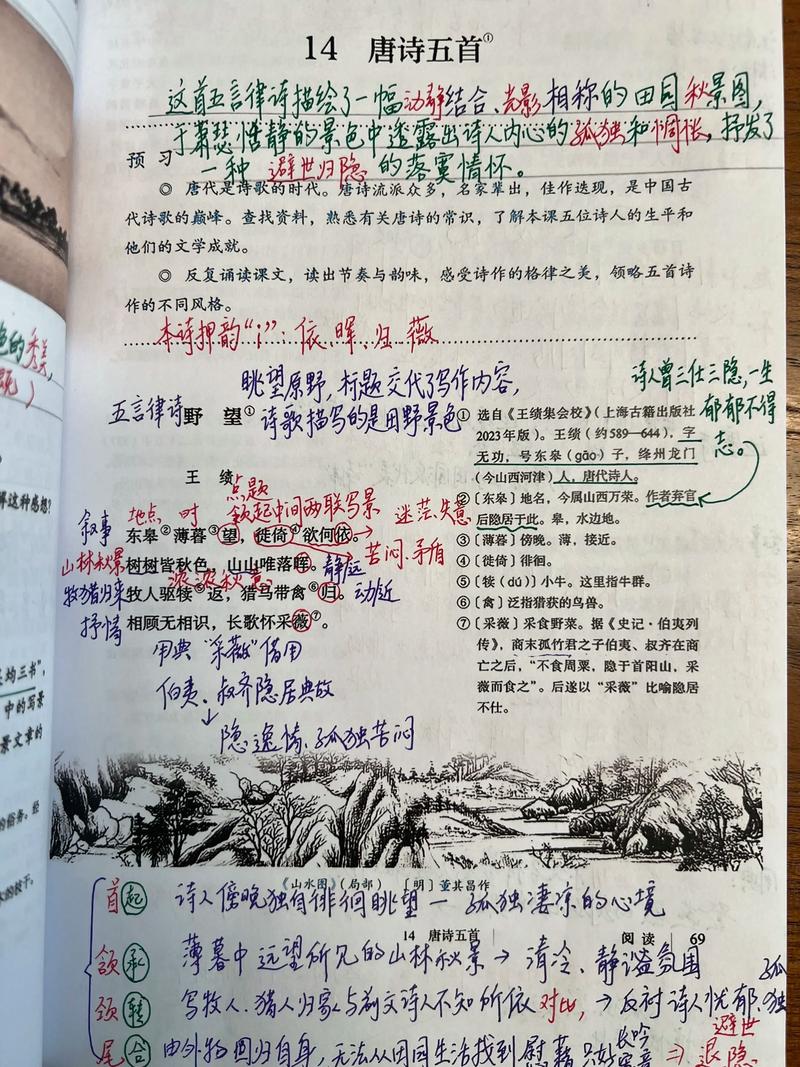 14 唐诗五首①
这首五言律诗描绘了一幅动静结合、光影相称的田园秋景图，
于萧瑟恬静的景色中透露出诗人内心的孤独和惆怅，抒发了
一种避世归隐的落寞情怀。
预 习
◎ 唐代是诗歌的时代。唐诗流派众多，名家辈出，佳作迭现，是中国古
代诗歌的巅峰。查找资料，熟悉有关唐诗的常识，了解本课五位诗人的生平和
他们的文学成就。
◎ 反复诵读课文，读出节奏与韵味，感受诗作的格律之美，领略五首诗
作的不同风格。
本诗押韵“i”：依、晖、归、薇
眺望原野，标题交代了写作内容，
诗歌描写的是田野景色
五言律诗
野 望①
王 绩
点题
地点 时 领起中间两联写景 迷茫、失意
叙事
东皋②薄暮③望，徙倚④欲何依。
苦闷、矛盾
山林秋景
树树皆秋色，山山唯落晖。
静远
浓浓秋意
牧猎归来
牧人驱犊⑤返，猎马带禽⑥归。
动近
抒情
相顾无相识，长歌怀采薇⑦。
用典“采薇”借用
伯夷、叔齐隐居典故
↓
隐逸情、孤独苦闷
诗人曾三仕三隐，一生
郁郁不得
志。
① 选自《王绩集会校》（上海古籍出版社
2023年版）。王绩（约589—644），字
无功，号东皋（gāo）子，绛州龙门
（今山西河津）人，唐代诗人。
②〔东皋〕地名，今属山西万荣。作者弃官
后隐居于此。皋，水边地。
③〔薄暮〕傍晚。薄，接近。
④〔徙倚〕徘徊。
⑤〔犊（dú）〕小牛。这里指牛群。
⑥〔禽〕泛指猎获的鸟兽。
⑦〔采薇〕采食野菜。据《史记·伯夷列
传》，商末孤竹君之子伯夷、叔齐在商
亡之后，“不食周粟，隐于首阳山，采
薇而食之”。后遂以“采薇”比喻隐居
不仕。
《山水图》（局部） 〔明〕董其昌作
首 起 诗人傍晚独自徘徊眺望—孤独凄凉的心境
14 唐诗五首 阅读 69
颔 承 薄暮中远望所见的山林秋景→清冷、静谧氛围
颈 转 写牧人、猎人归家与前文诗人不知所依对比，→反衬诗人忧郁、孤独
尾 合 由外物回归自身，无法从田园生活找到慰藉只好长吟
⇒避世退隐
色的秀美，
解这种感想？
均三书”，
中的写景
景文章的